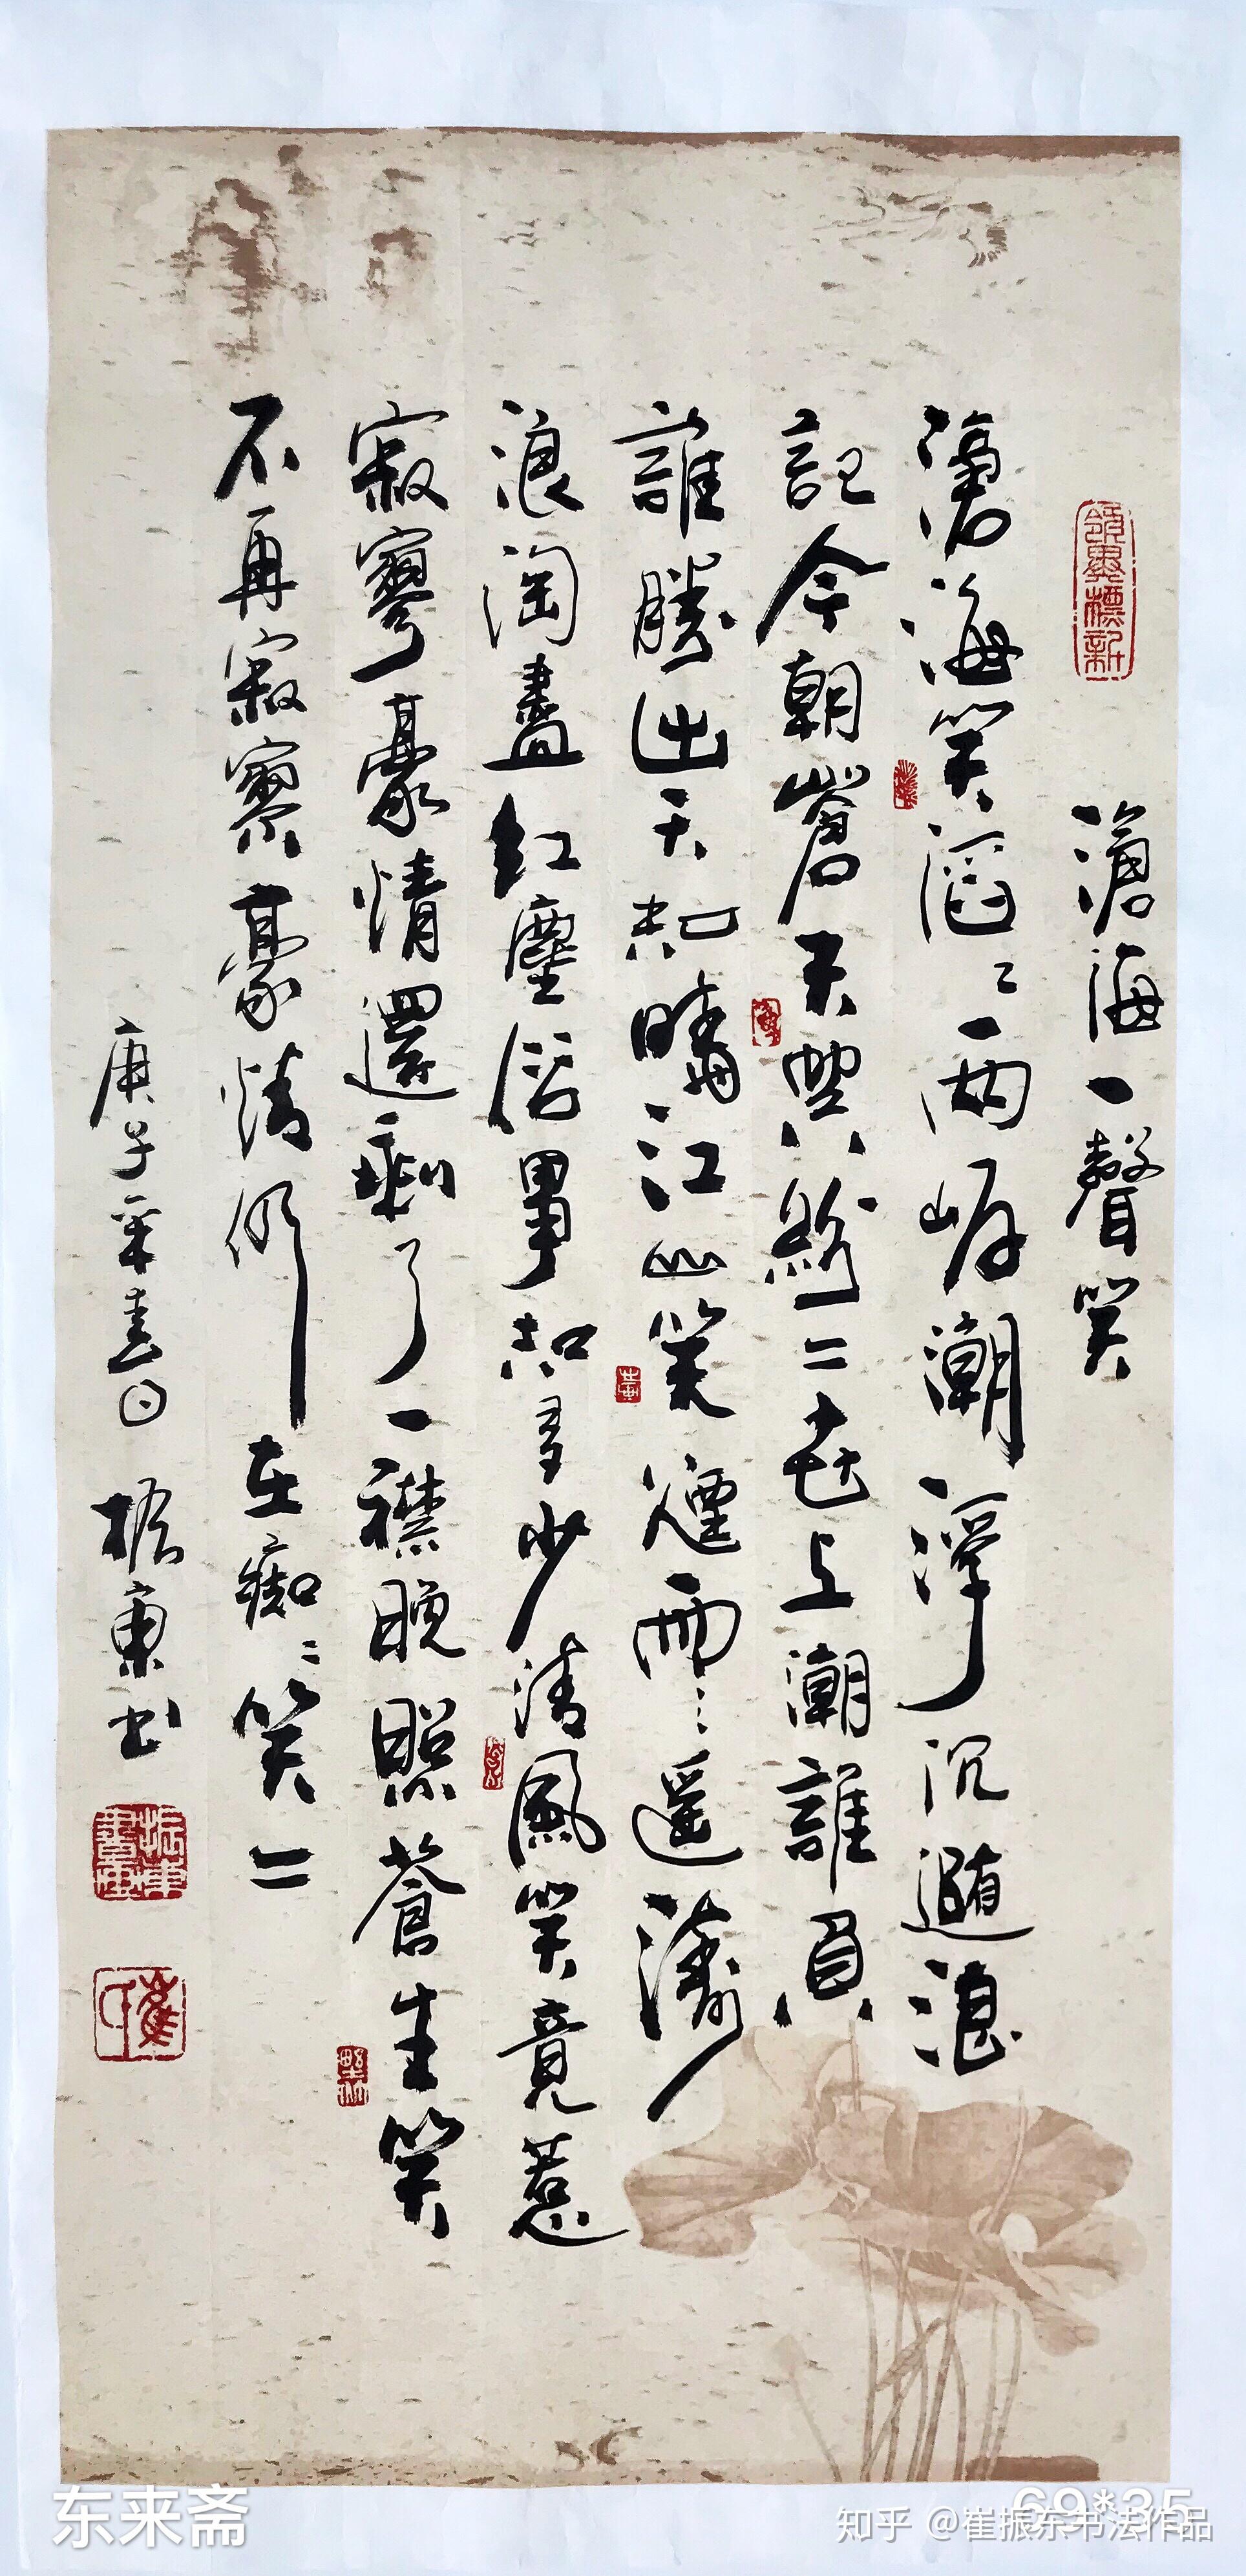 領異標新
滄海一聲笑
滄海笑滔〻兩岸潮浮沉隨浪
記今朝蒼天笑紛〻世上潮誰負
誰勝出天知曉江山笑煙雨遥濤
浪淘盡紅塵俗事知多少清風笑竟惹
寂寥豪情還剩了一襟晚照蒼生笑
不再寂寥豪情仍在痴〻笑〻
庚子年春日 振東书
振東書畫
崔氏
东来斋
69*35
知乎 @崔振东书法作品